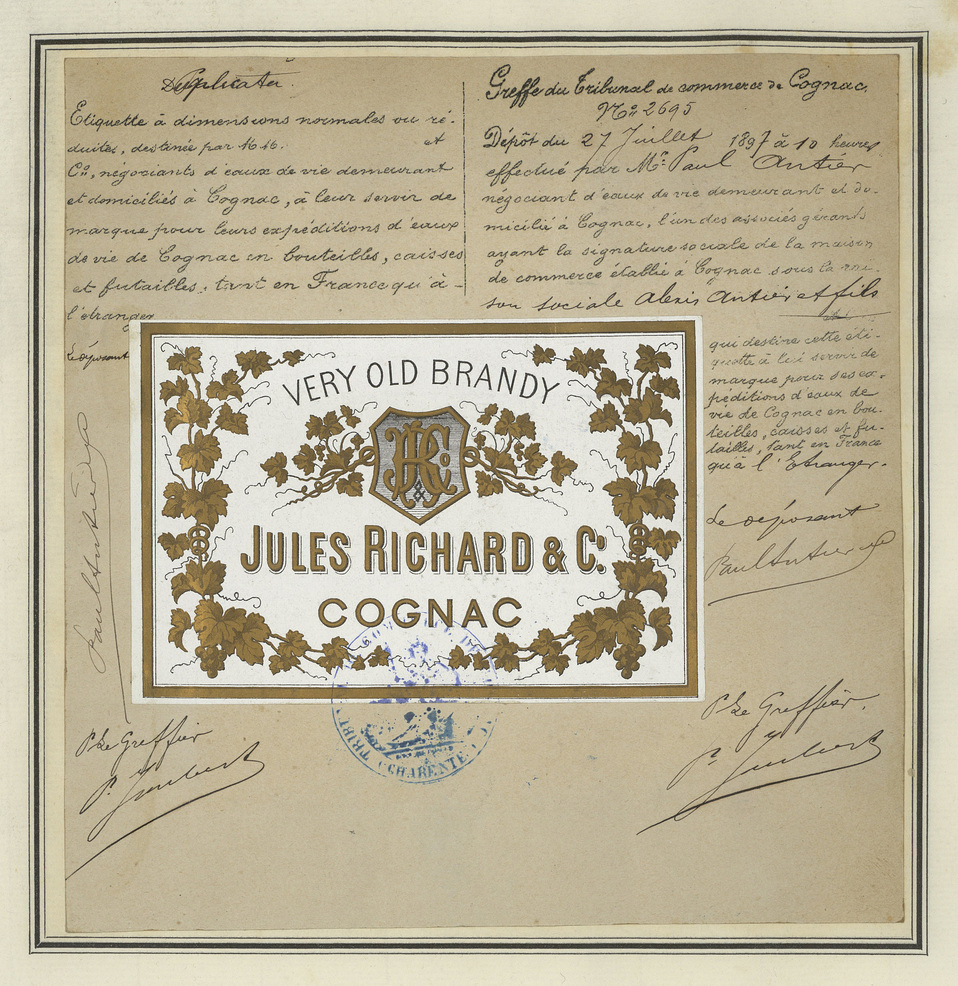 Duplicata
Etiquette à dimensions normales ou ré-
duites, destinée par MM. et
Cie, négociants d'eaux de vie demeurant
et domiciliés à Cognac, à leur servir de
marque pour leurs expéditions d'eaux
de vie de Cognac en bouteilles, caisses
et futailles, tant en France qu'à
l'étranger
Le déposant
Paul Antier
P. Le Greffier
P. Joubert
Greffe du Tribunal de commerce de Cognac.
No. 2695
Dépôt du 27 Juillet 1897 à 10 heures
effectué par Mr. Paul Antier
négociant d'eaux de vie demeurant et do-
micilié à Cognac, l'un des associés gérants
ayant la signature sociale de la maison
de commerce établie à Cognac sous la rai-
son sociale Alexis Antier et fils
qui destine cette éti-
quette à lui servir de
marque pour ses ex-
péditions d'eaux de
vie de Cognac en bou-
teilles, caisses et fu-
tailles, tant en France
qu'à l'Etranger.
Le déposant
Paul Antier
P. Le Greffier.
P. Joubert
VERY OLD BRANDY
JRCo
&
JULES RICHARD & Co.
COGNAC
TRIB. COMMERCE DE
(CHARENTE)